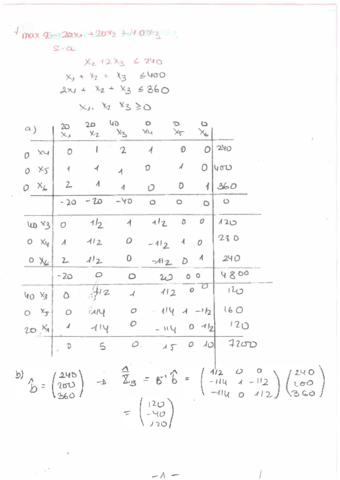 max z=20x1+20x2+40x3
s.a
x2+2x3 ≤ 240
x1 + x2 + x3 ≤ 400
2x1 + x2 + x3 ≤ 360
x1, x2 x3 ≥ 0
a) 20 20 40 0 0 0
x1 x2 x3 x4 x5 x6
0 x4 0 1 2 1 0 0 240
0 x5 1 1 1 0 1 0 400
0 x6 2 1 1 0 0 1 360
-20 -20 -40 0 0 0 0
40 x3 0 1/2 1 1/2 0 0 120
0 1 1/2 0 -1/2 1 0 280
0 x6 2 1/2 0 -1/2 0 1 240
-20 0 0 20 0 0 4800
40 x3 0 1/2 1 1/2 0 0 120
0 x5 0 1/4 0 -1/4 1 -1/2 160
20 x1 1 1/4 0 -1/4 0 1/2 120
0 5 0 15 0 10 7200
b) b̂ = (240 200 360) → = B⁻¹ b̂ = (1/2 0 0 -1/4 1 -1/2 -1/4 0 1/2) (240 200 360)
= (120 -40 120)
-1-